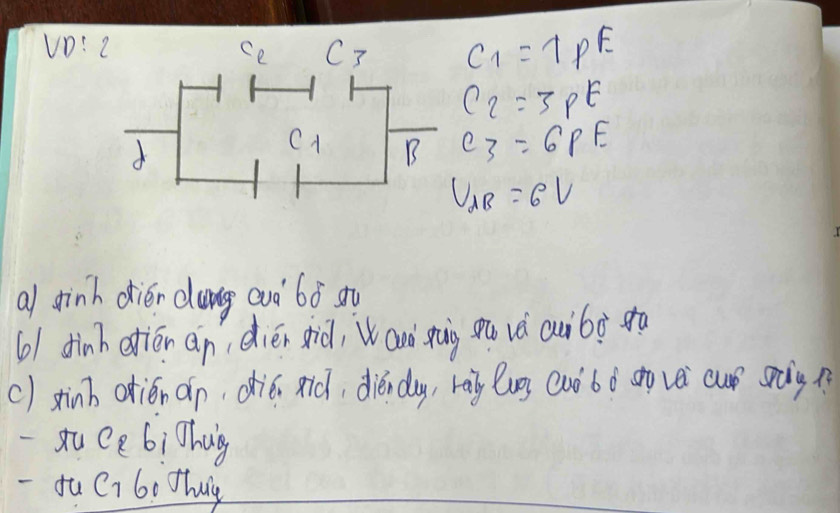 VD: 2
C2 C3
C1
A B
C1 = 1pF
C2 = 3pF
C3 = 6pF
UAB = 6V
a) tính điện dung của bộ tụ
b) tính điện áp, điện tích, W của từng tụ và của bộ tụ
c) tính điện áp, điện tích, điện dung, năng lượng của bộ tụ và của từng tụ?
- tụ C2 bị thủng
- tụ C1 bị thủng